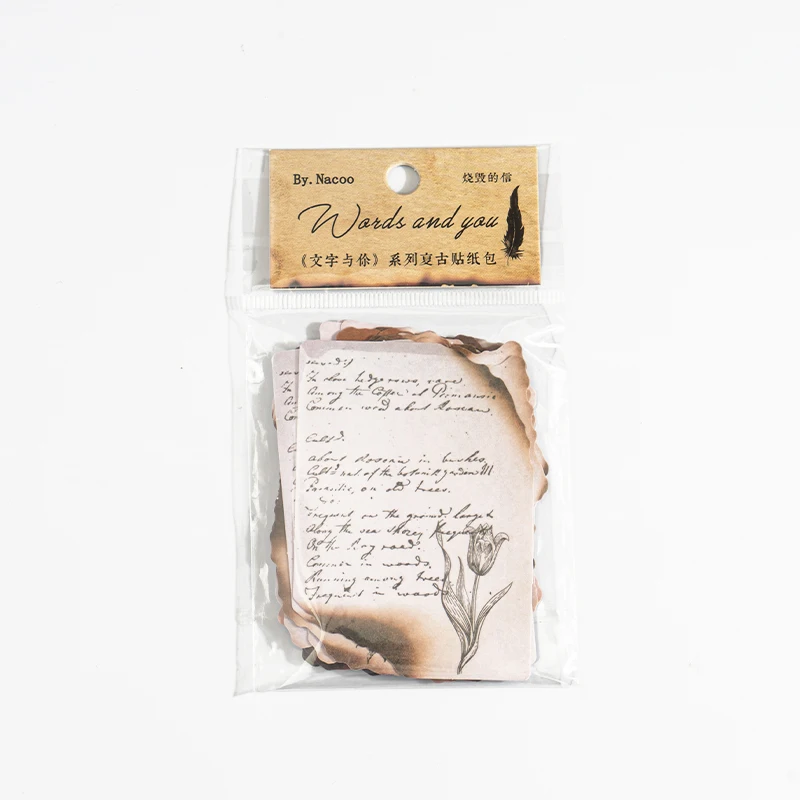 By. Nacoo
烧毁的信
Words and you
《文字与你》系列复古贴纸包
In close hedgerows, race.
Among the Coffee at
Common wood about Roseau.
Cult?.
about Roseau in bushes.
Cult? nat. of the botanic garden
Parasitic, on old trees.
Frequent on the ground.
Along the sea shore, frequent
On the road.
Common in woods.
Running among trees
Frequent in wood